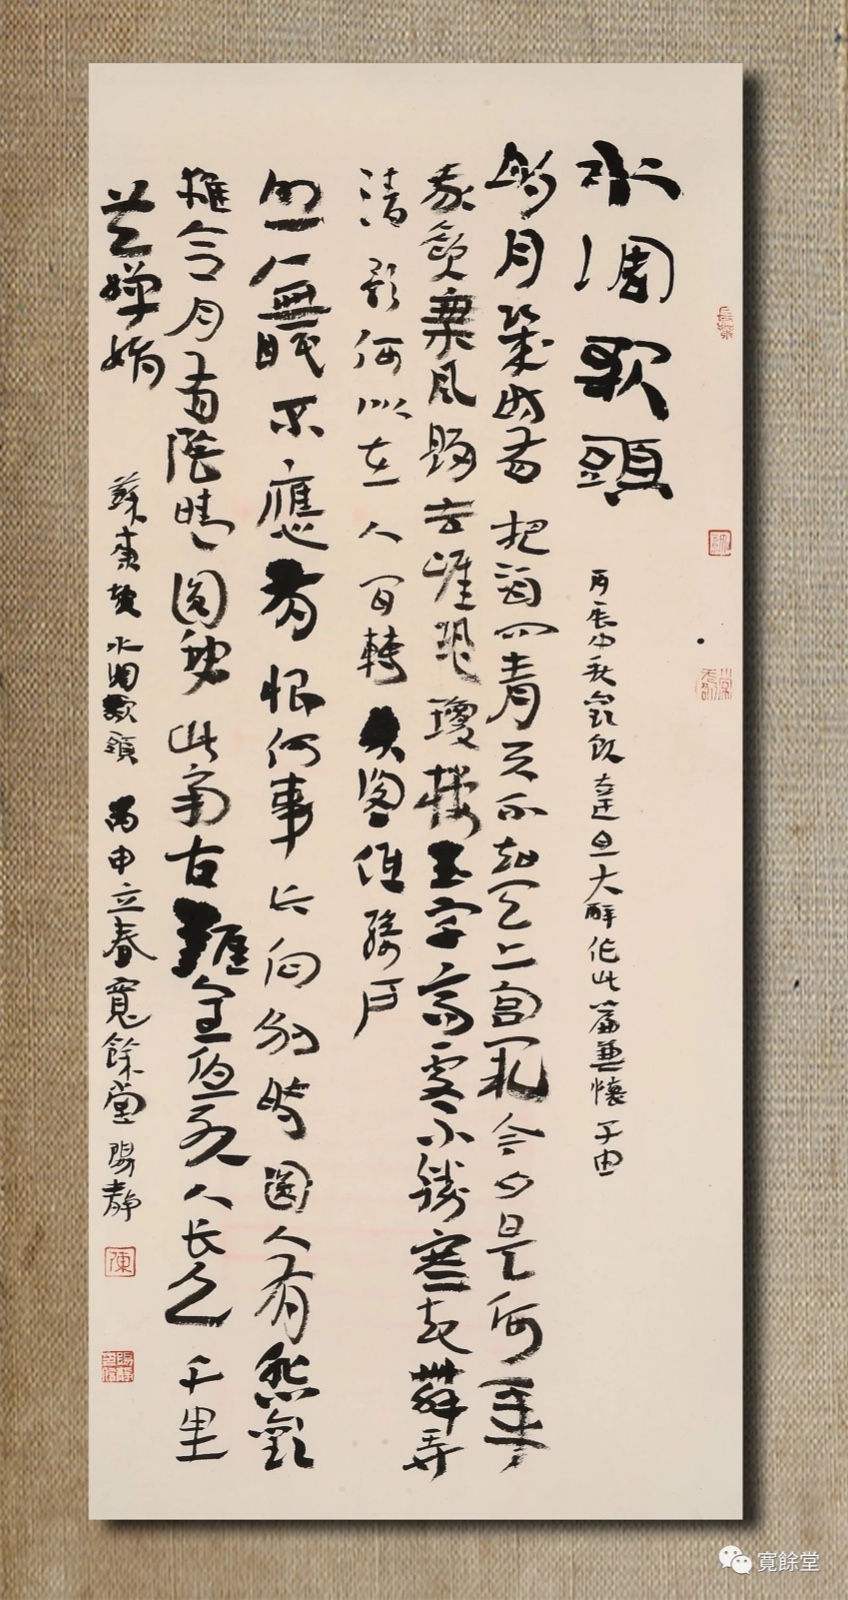 水調歌頭
丙辰中秋歡飲達旦大醉作此篇兼懷子由
明月幾時有把酒问青天不知天上宫闕今夕是何年
我欲乘風歸去唯恐瓊樓玉宇高處不勝寒起舞弄
清影何似在人间轉朱阁低綺户
照無眠不應有恨何事长向别時圓人有悲歡
離合月有陰晴圆缺此事古難全但願人长久千里
共嬋娟
蘇東坡水调歌頭丙申立春寬餘堂陽静
陳
寬餘堂